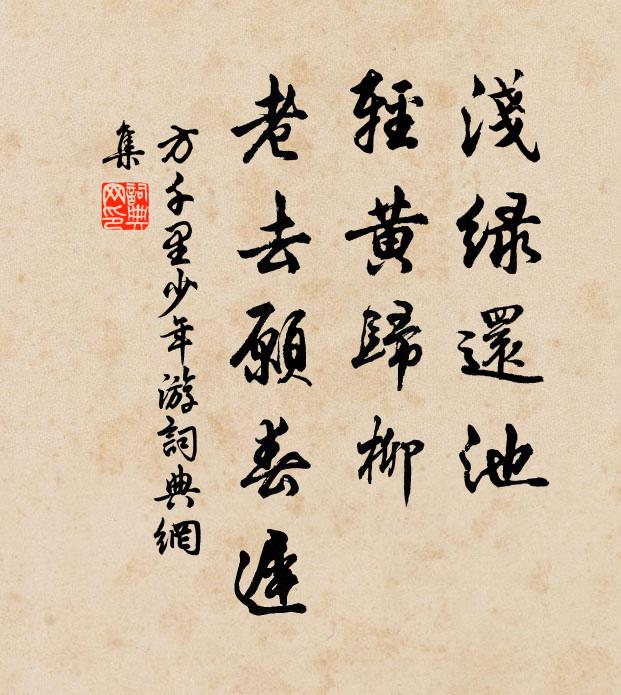 淺綠還池
輕黃歸柳
老去願春遲
方千里少年游詞典網
集
詞典
网印